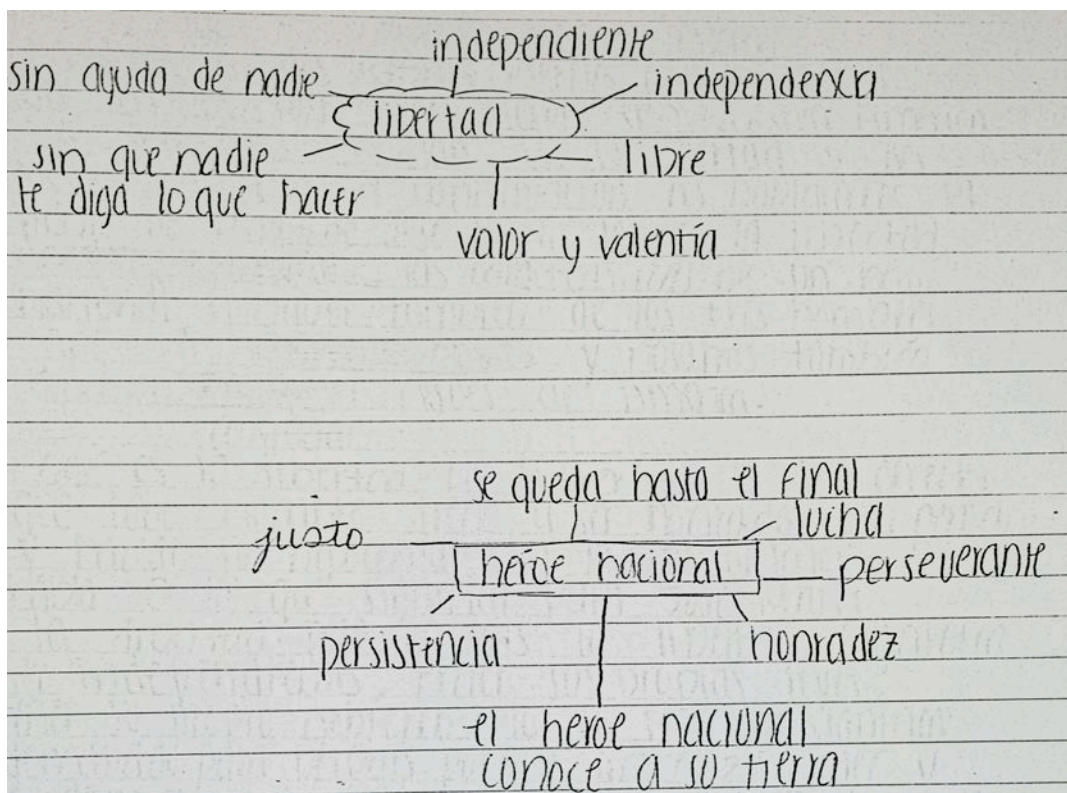 independiente
sin ayuda de nadie
independencia
libertad
sin que nadie
libre
te diga lo que hacer
valor y valentía
se queda hasta el final
justo
lucha
heroe nacional
perseverante
persistencia
honradez
el heroe nacional
conoce a su tierra